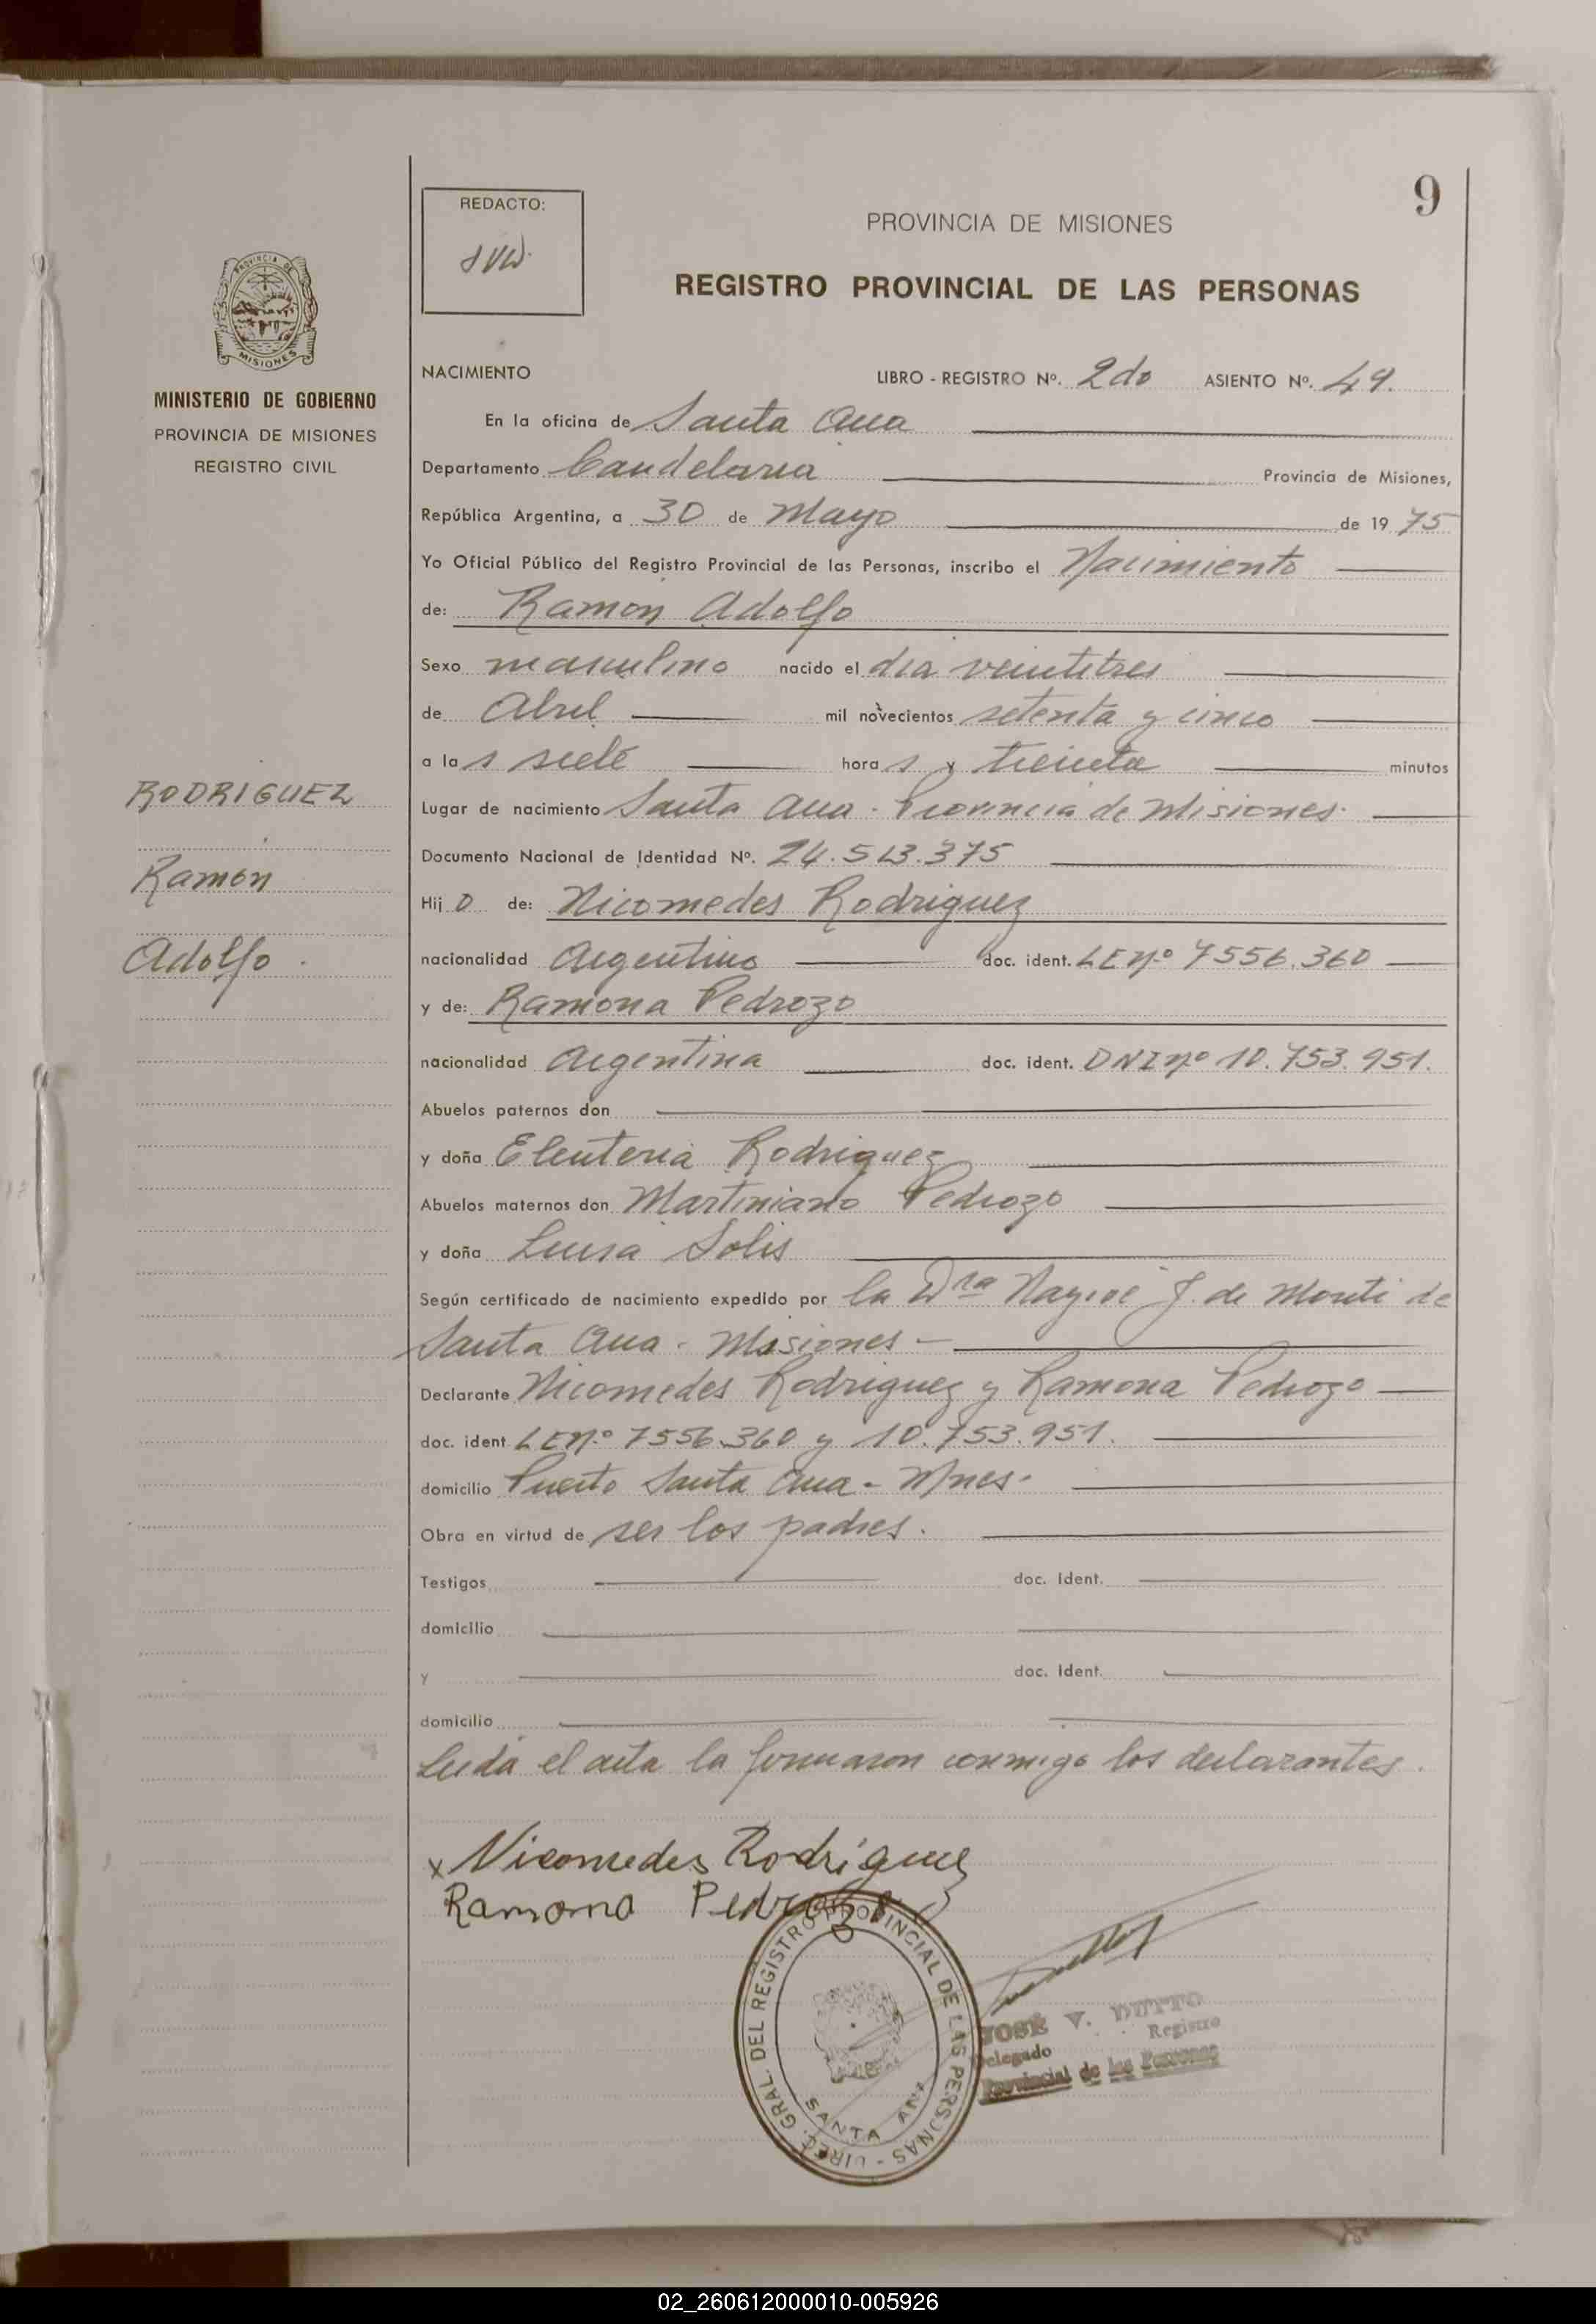 9
REDACTO:
PROVINCIA DE MISIONES
REGISTRO PROVINCIAL DE LAS PERSONAS
PROVINCIA DE
MISIONES
MINISTERIO DE GOBIERNO
PROVINCIA DE MISIONES
REGISTRO CIVIL
RODRIGUEZ
Ramón
Adolfo.
NACIMIENTO LIBRO - REGISTRO Nº. 2do ASIENTO Nº. 49.
En la oficina de Santa Ana
Departamento Candelaria Provincia de Misiones,
República Argentina, a 30 de Mayo de 1975
Yo Oficial Público del Registro Provincial de las Personas, inscribo el Nacimiento
de: Ramón Adolfo
Sexo masculino nacido el dia veintitres
de Abril mil novecientos setenta y cinco
a las siete horas y treinta minutos
Lugar de nacimiento Santa Ana - Provincia de Misiones.
Documento Nacional de Identidad Nº. 24.513.375
Hijo de: Nicomedes Rodriguez
nacionalidad Argentino doc. ident. LE nº 7556.360
y de: Ramona Pedrozo
nacionalidad Argentina doc. ident. DNI nº 10.753.951.
Abuelos paternos don
y doña Eleuteria Rodriguez
Abuelos maternos don Martiniano Pedrozo
y doña Luisa Solis
Según certificado de nacimiento expedido por la Dra J. de Monti de
Santa Ana - Misiones -
Declarante Nicomedes Rodriguez y Ramona Pedrozo
doc. ident LE nº 7556.360 y 10.753.951.
domicilio Puerto Santa Ana - Mnes.
Obra en virtud de ser los padres.
Testigos doc. ident.
domicilio
y doc. ident.
domicilio
Leida el acta la firmaron conmigo los declarantes.
x Nicomedes Rodriguez
Ramona Pedrozo
DIREC. GRAL. DEL REGISTRO PROVINCIAL DE LAS PERSONAS -
SANTA ANA
JOSE V. DUTTO
Delegado Registro
Provincial de las Personas
02_260612000010-005926